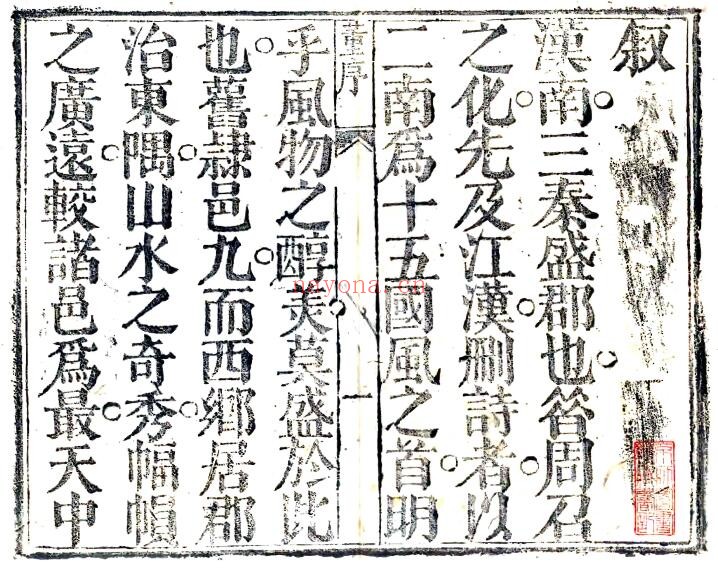 叙
漢南三秦盛郡也昔周召
之化先及江漢刪詩者以
二南爲十五國風之首明
董序
一
乎風物之醇美莫盛於此
也舊隸邑九而西鄉居郡
治東隅山水之奇秀幅幀
之廣遠較諸邑爲最天中